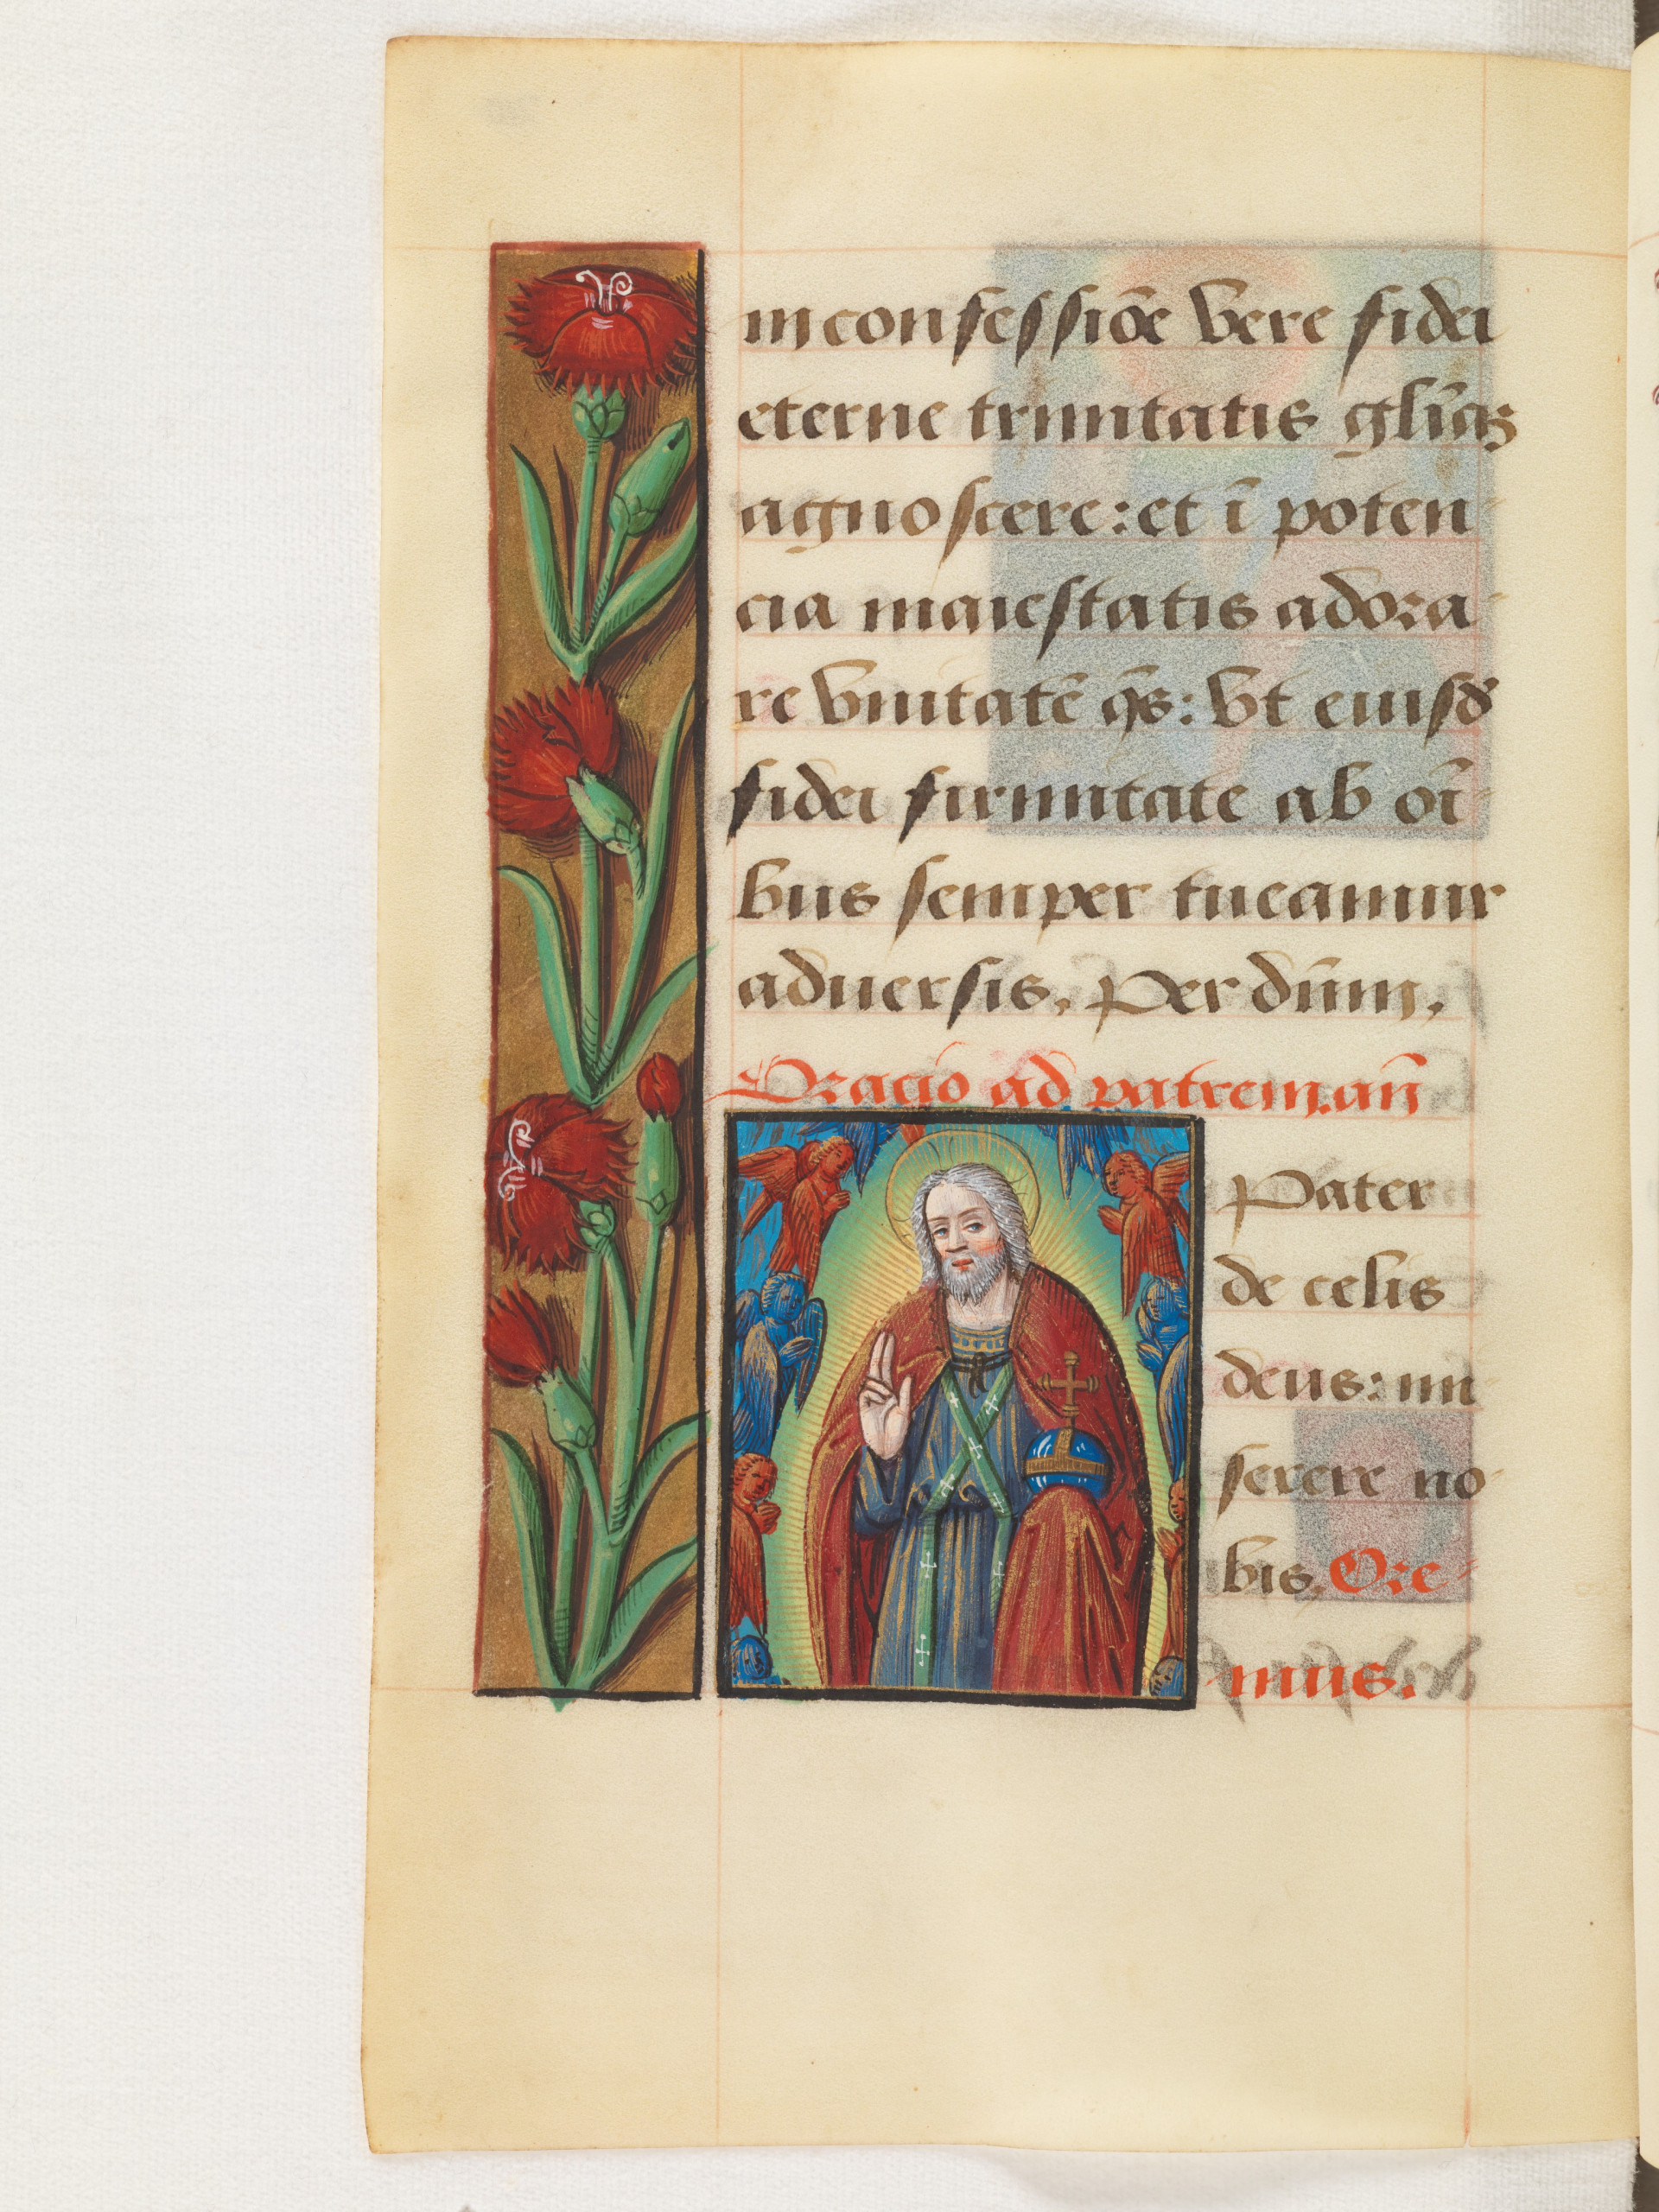 in confessiōe vere fidei
eterne trinitatis glīaȝ
agnoscere: et ī poten
cia maiestatis adora
re vnitatē q̄s: vt eiusd̄
fidei firmitate ab oī
bus semper tueamur
aduersis. Per dn̄m.
Oracio ad patrem. an̄
Pater
de celis
deus: mi
serere no
bis. Ore
mus.